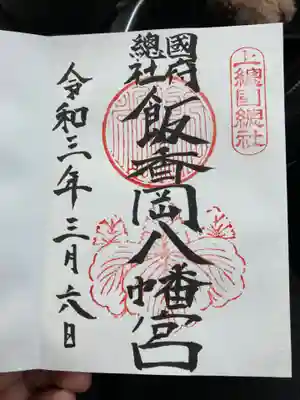 上總国總社
國府
總社
飯香岡八幡宮
令和三年三月六日